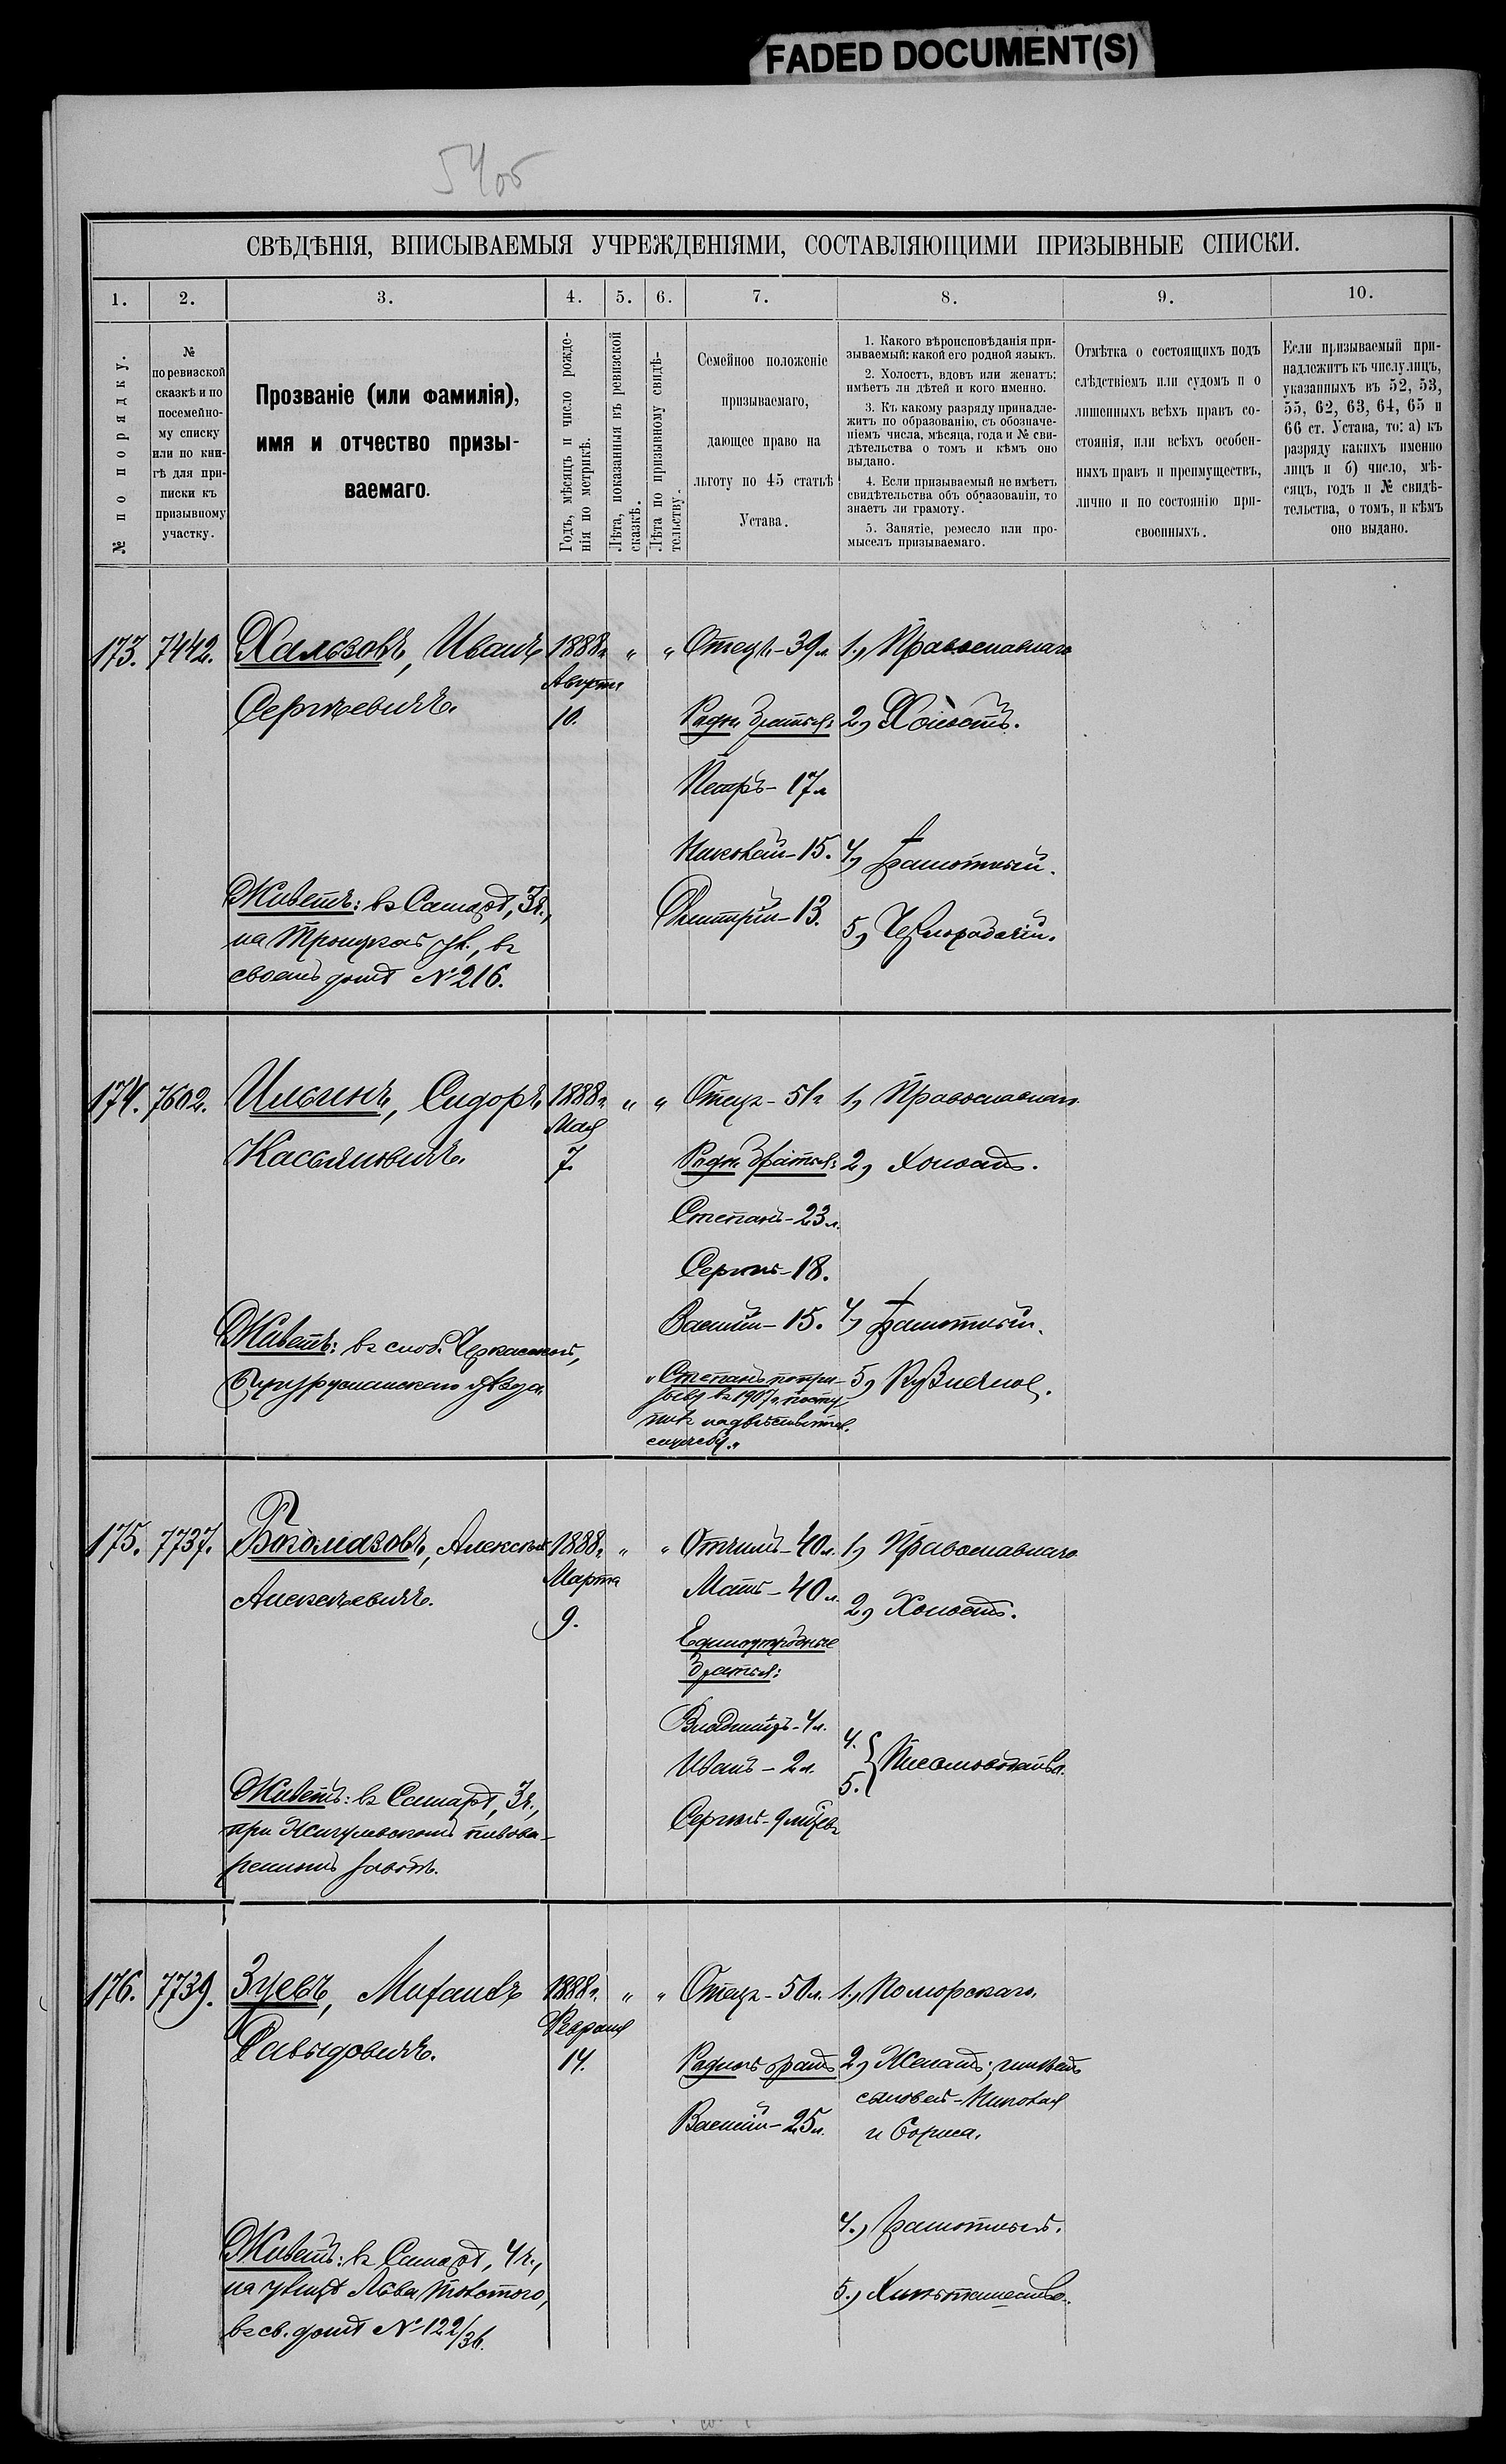 FADED DOCUMENT(S)
54об
СВѢДѢНІЯ, ВПИСЫВАЕМЫЯ УЧРЕЖДЕНІЯМИ, СОСТАВЛЯЮЩИМИ ПРИЗЫВНЫЕ СПИСКИ.
1. 2. 3. 4. 5. 6. 7. 8. 9. 10.
№ по порядку.
№
по ревизской
сказкѣ и по
посемейно-
му списку
или по кни-
гѣ для при-
писки къ
призывному
участку.
Прозваніе (или фамилія),
имя и отчество призы-
ваемаго.
Годъ, мѣсяцъ и число рожде-
нія по метрикѣ.
Лѣта, показанныя въ ревизской
сказкѣ.
Лѣта по призывному свидѣ-
тельству.
Семейное положеніе
призываемаго,
дающее право на
льготу по 45 статьѣ
Устава.
1. Какого вѣроисповѣданія при-
зываемый: какой его родной языкъ.
2. Холостъ, вдовъ или женатъ:
имѣетъ ли дѣтей и кого именно.
3. Къ какому разряду принадле-
житъ по образованію, съ обозначе-
ніемъ числа, мѣсяца, года и № сви-
дѣтельства о томъ и кѣмъ оно
выдано.
4. Если призываемый не имѣетъ
свидѣтельства объ образованіи, то
знаетъ ли грамоту.
5. Занятіе, ремесло или про-
мыселъ призываемаго.
Отмѣтка о состоящихъ подъ
слѣдствіемъ или судомъ и о
лишенныхъ всѣхъ правъ со-
стоянія, или всѣхъ особен-
ныхъ правъ и преимуществъ,
лично и по состоянію при-
своенныхъ.
Если призываемый при-
надлежитъ къ числу лицъ,
указанныхъ въ 52, 53,
55, 62, 63, 64, 65 и
66 ст. Устава, то: а) къ
разряду какихъ именно
лицъ и б) число, мѣ-
сяцъ, годъ и № свидѣ-
тельства, о томъ, и кѣмъ
оно выдано.
173. 7442. Хользовъ, Иванъ
Сергѣевичъ.
Живетъ: въ Самарѣ, 3ч.,
на Троицкой ул., въ
своемъ домѣ №216.
1888г.
Августа
10.
" "
Отецъ-39л.
Родн. братья:
Петръ-17л
Николай-15.
Дмитрій-13.
1, Православнаго
2, Холостъ.
4, Грамотный.
5, Чернорабочій.
174. 7602. Ильинъ, Сидоръ
Касьяновичъ.
Живетъ: въ слоб. Черкасской,
Бугурусланскаго уѣзда.
1888г.
Мая
7.
" "
Отецъ-51г
Родн. братья:
Степанъ-23л.
Сергѣй-18.
Василій-15.
"Степанъ по при-
зыву въ 1907г. посту-
пилъ на дѣйствител.
службу."
1, Православнаго
2, Холостъ.
4, Грамотный.
5, Кузнечное.
175. 7737. Богомазовъ, Алексѣй
Алексѣевичъ.
Живетъ: въ Самарѣ, 3ч.,
при Жигулевскомъ пивова-
ренномъ заводѣ.
1888г.
Марта
9.
" "
Отчимъ-40л.
Мать-40л.
Единоутробные
братья:
Владиміръ-4л.
Иванъ-2л.
Сергѣй-9мѣсев
1, Православнаго
2, Холостъ.
4.
5.
Письмоводитель.
176. 7739. Зуевъ, Михаилъ
Давыдовичъ.
Живетъ: въ Самарѣ, 4ч.,
на улицѣ Льва Толстого,
въ св. домѣ №122/36.
1888г.
Февраля
14.
" "
Отецъ-50л.
Родной братъ
Василій-25л.
1, Поморскаго.
2, Женатъ; имѣетъ
сыновей-Николая
и Бориса.
4., Грамотный.
5., Хлѣбопашество.